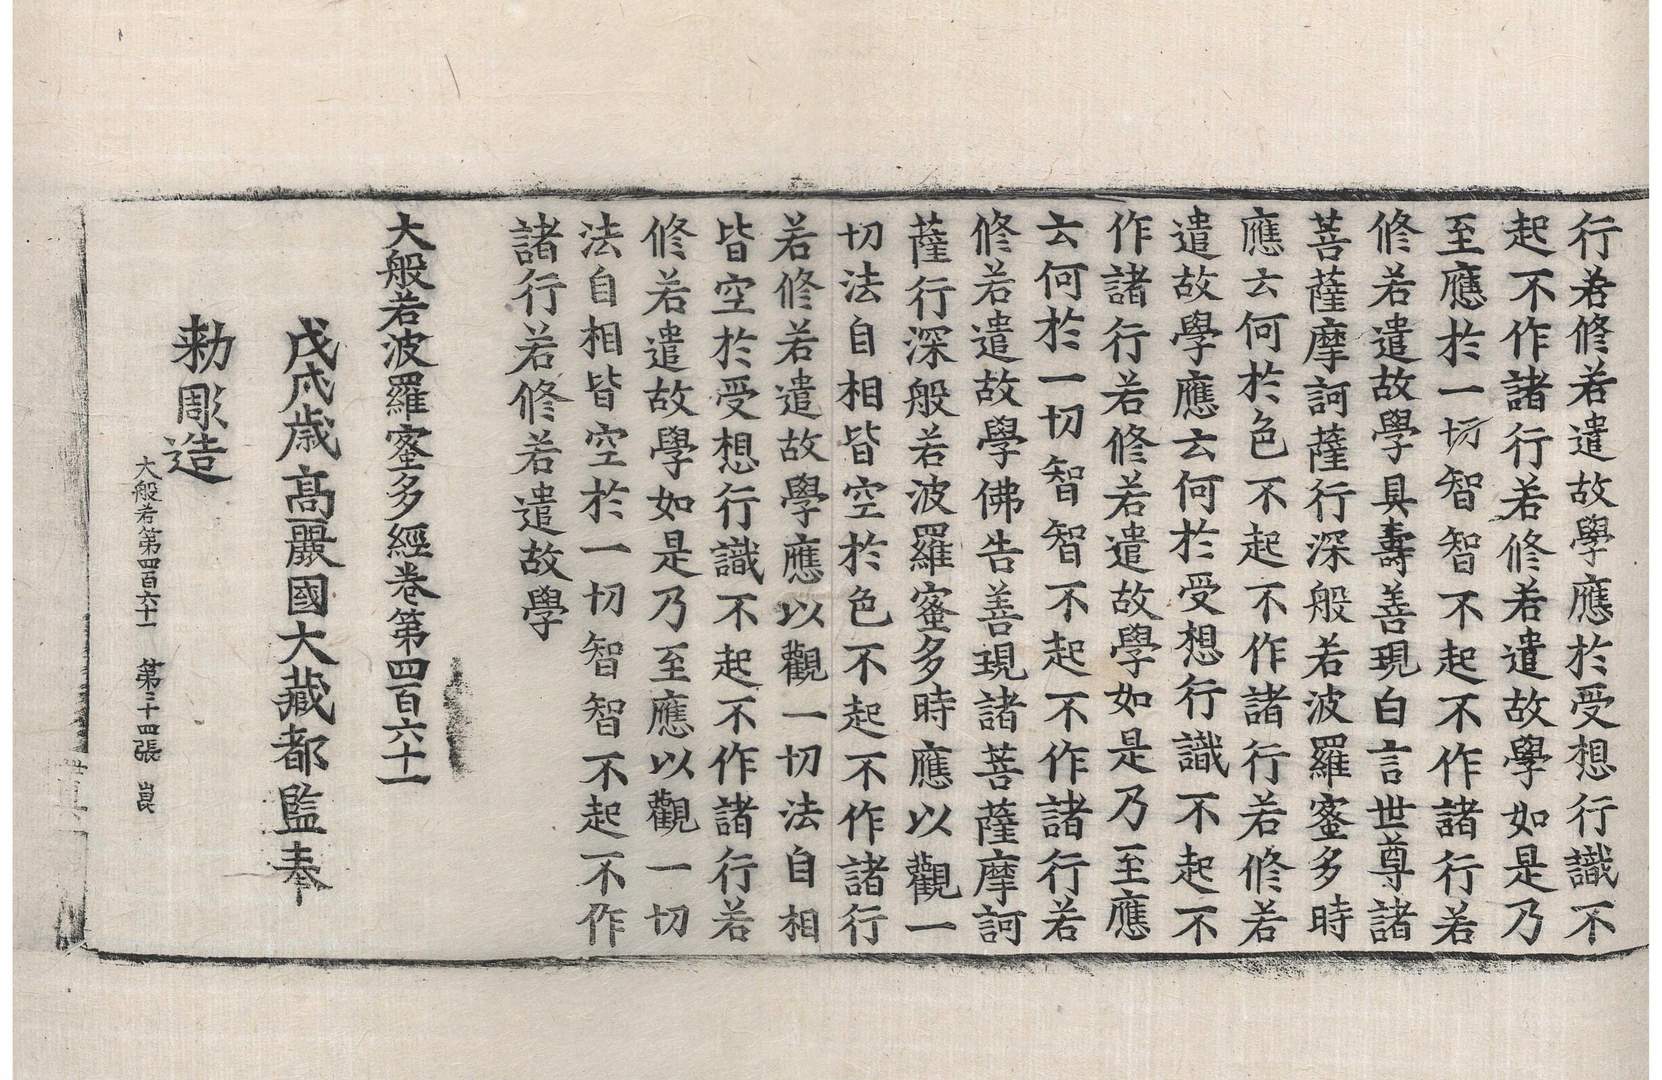 行若修若遣故學應於受想行識不
起不作諸行若修若遣故學如是乃
至應於一切智智不起不作諸行若
修若遣故學具壽善現白言世尊諸
菩薩摩訶薩行深般若波羅蜜多時
應云何於色不起不作諸行若修若
遣故學應云何於受想行識不起不
作諸行若修若遣故學如是乃至應
云何於一切智智不起不作諸行若
修若遣故學佛告善現諸菩薩摩訶
薩行深般若波羅蜜多時應以觀一
切法自相皆空於色不起不作諸行
若修若遣故學應以觀一切法自相
皆空於受想行識不起不作諸行若
修若遣故學如是乃至應以觀一切
法自相皆空於一切智智不起不作
諸行若修若遣故學
大般若波羅蜜多經卷第四百六十一
戊戌歲高麗國大藏都監奉
勑彫造
大般若第四百六十一 第二十四張 崑